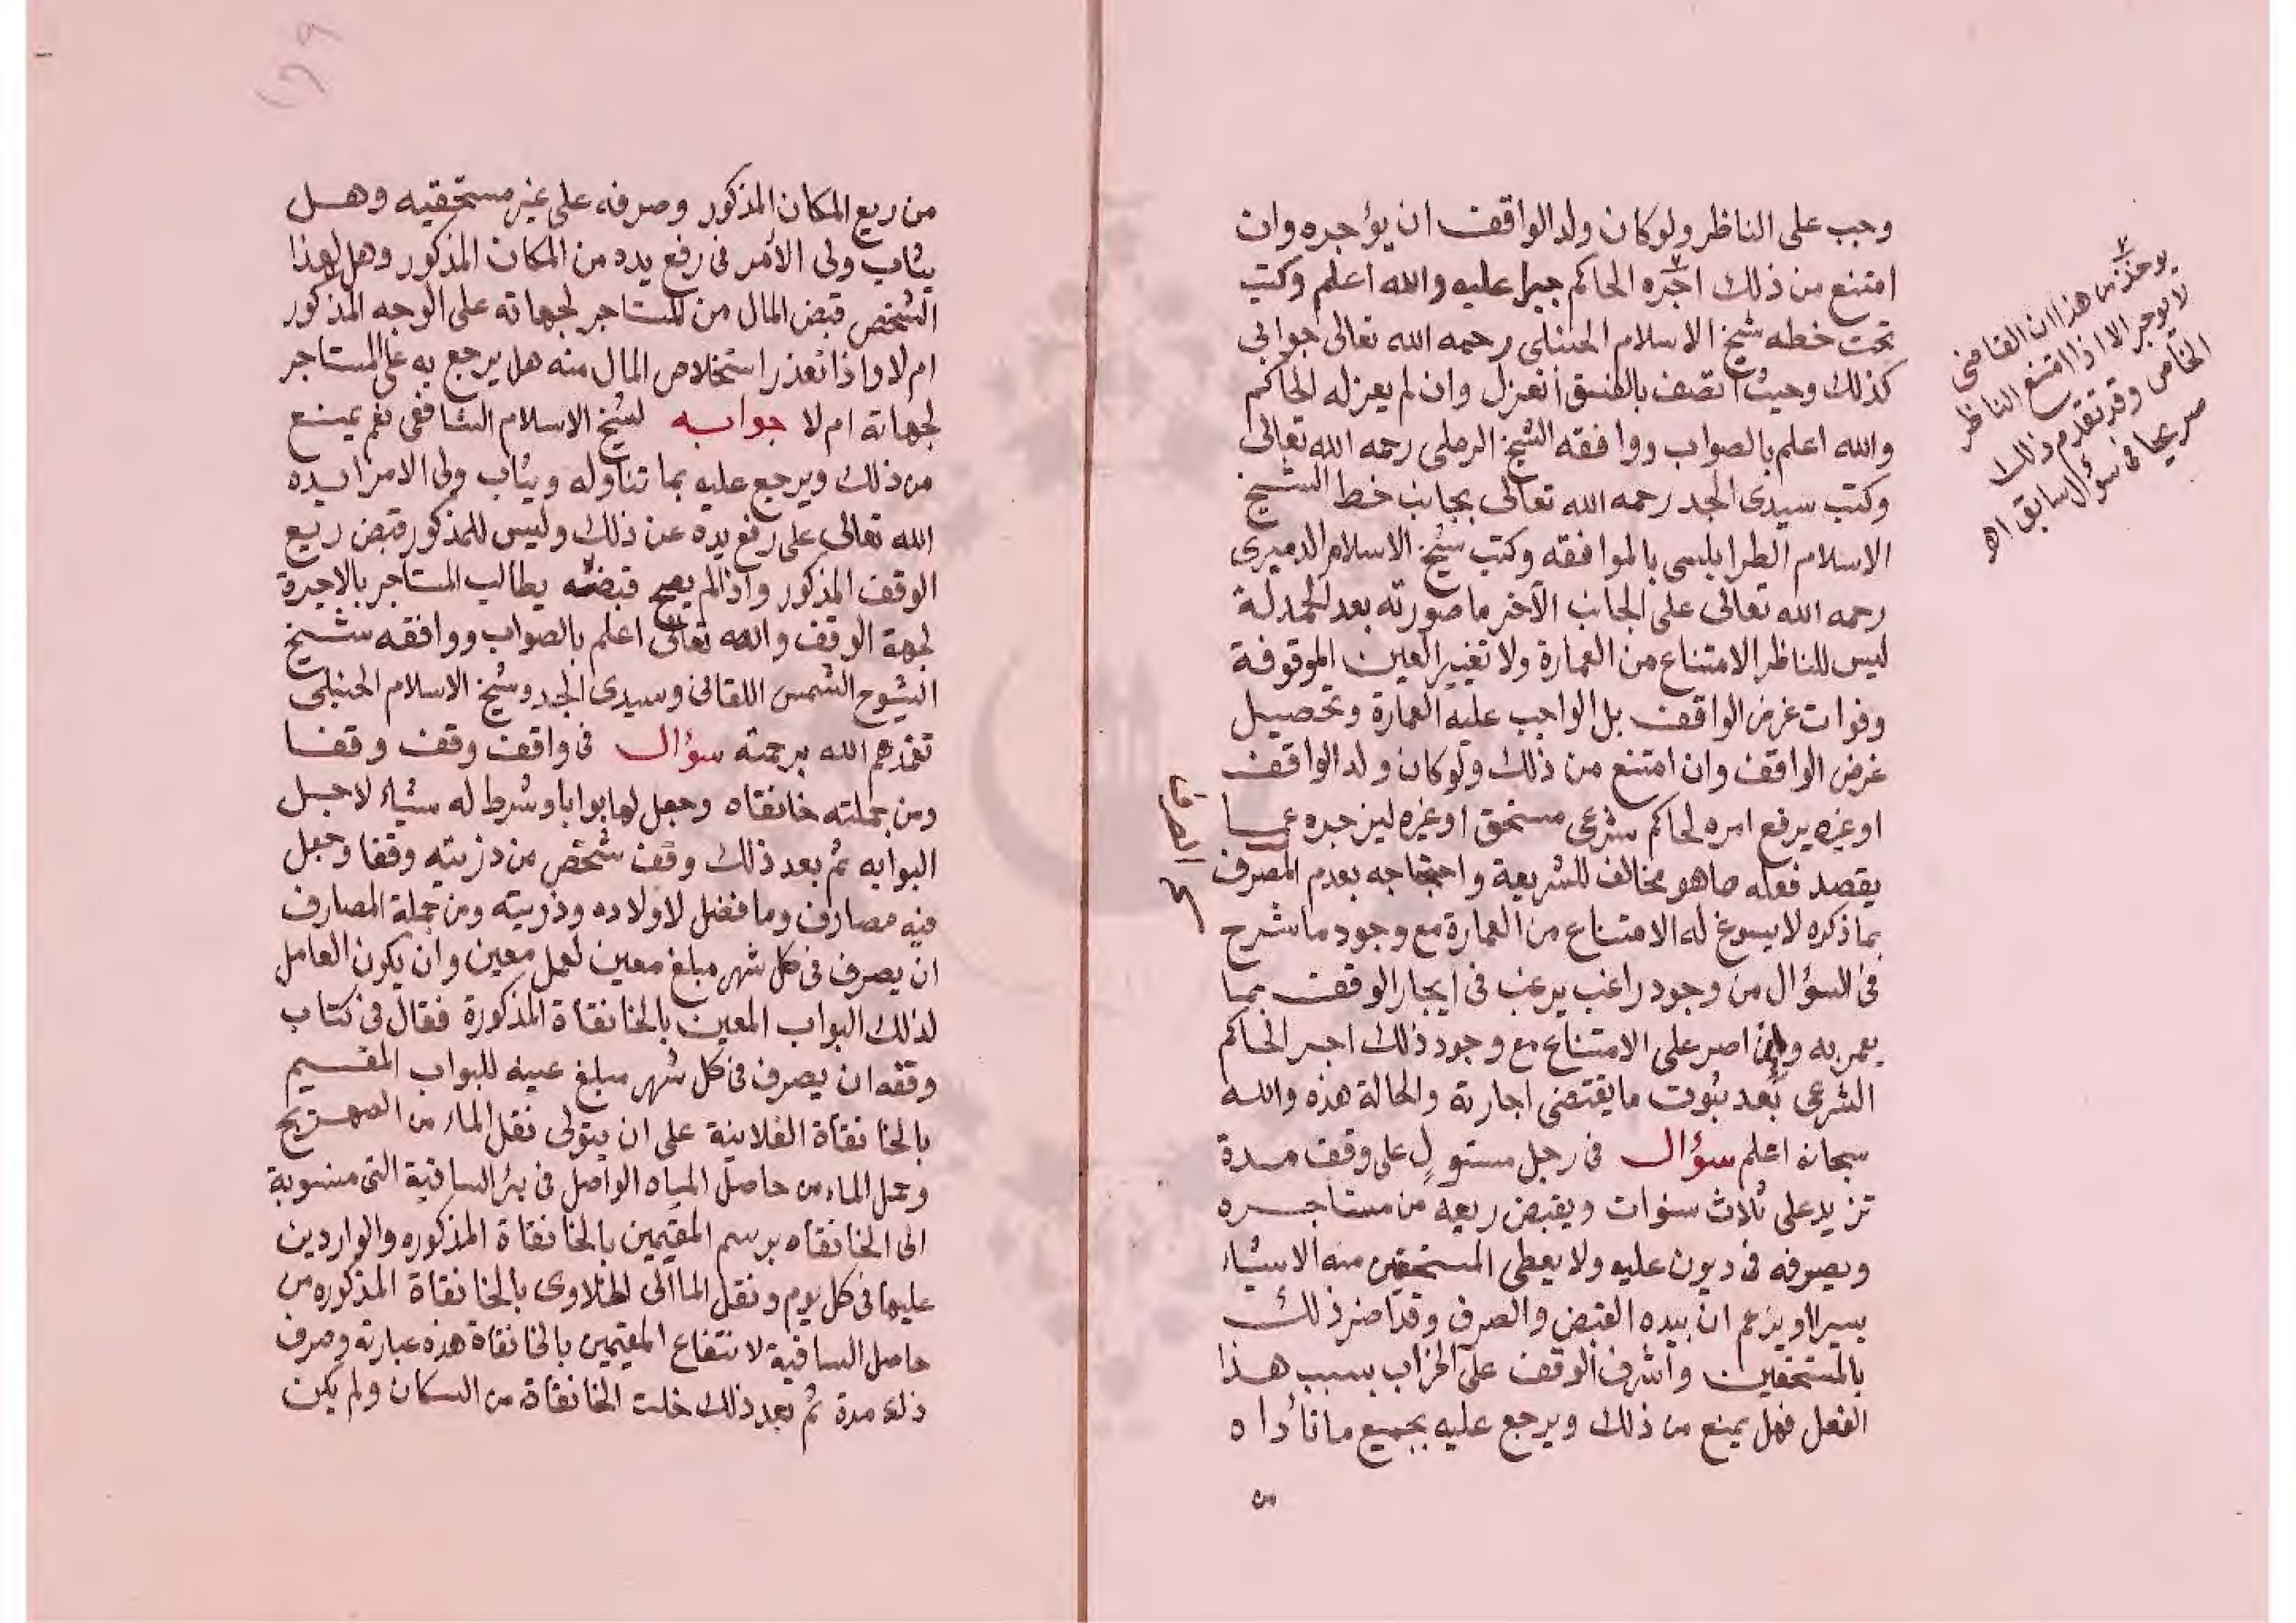 وجب على الناظر ولو كان ولد الواقف ان يؤجره وان
امتنع من ذلك اجره الحاكم جبرا عليه والله اعلم وكتب
تحت خطه شيخ الاسلام الحنبلى رحمه الله تعالى جوابى
كذلك وحيث اتصف بالفسق انعزل وان لم يعزله الحاكم
والله اعلم بالصواب ووافقه الشيخ الرملى رحمه الله تعالى
وكتب سيدى الجد رحمه الله تعالى بجانب خط الشيخ
الاسلام الطرابلسى بالموافقه وكتب شيخ الاسلام الدميرى
رحمه الله تعالى على الجانب الآخر ما صورته بعد الحمدلة
ليس للناظر الامتناع من العمارة ولا تغيير العين الموقوفة
وفوات غرض الواقف بل الواجب عليه العمارة وتحصيل
غرض الواقف وان امتنع من ذلك ولو كان ولد الواقف
او غيره يرفع امره لحاكم شرعى مستحق او غيره ليزجره عما
يقصد فعله ما هو مخالف للشريعة واحتجاجه بعدم المصرف
بما ذكره لا يسوغ له الامتناع من العمارة مع وجود ما شرح
فى السؤال من وجود راغب يرغب فى ايجار الوقف بما
يعمر به وان اصر على الامتناع مع وجود ذلك اجبر الحاكم
الشرعى بعد ثبوت ما يقتضى اجارته والحالة هذه والله
سبحانه اعلم سؤال فى رجل مستولٍ على وقف مدة
تزيد على ثلاث سنوات ويقبض ريعه من مستاجره
ويصرفه فى ديون عليه ولا يعطى المستحقين منه الا شيئا
يسيرا ويزعم ان بيده القبض والصرف وقد اضر ذلك
بالمستحقين واشرف الوقف على الخراب بسبب هذا
الفعل فهل يمنع من ذلك ويرجع عليه بجميع ما تأداه
من
يوخذ من هذا ان القاضى
لا يوجر الا اذا امتنع الناظر
الخاص وقد تقدم ذلك
صريحا فى سؤال سابق اهـ
من ريع المكان المذكور وصرفه على غير مستحقيه وهل
يثاب ولى الأمر فى رفع يده من المكان المذكور وهل لهذا
الشخص قبض المال من المستاجر لجهاته على الوجه المذكور
ام لا واذا تعذر استخلاص المال منه هل يرجع به على المستاجر
لجهاته ام لا جوابه لشيخ الاسلام الشافعى نعم يمنع
من ذلك ويرجع عليه بما تناوله ويثاب ولى الامر ايده
الله تعالى على رفع يده عن ذلك وليس للمذكور قبض ريع
الوقف المذكور واذا لم يصح قبضه يطالب المستاجر بالاجرة
لجهة الوقف والله تعالى اعلم بالصواب ووافقه شيخ
الشيوخ الشمس اللقانى وسيدى الجد وشيخ الاسلام الحنبلى
تغمدهم الله برحمته سؤال فى واقف وقف وقفا
ومن جملته خانقاه وجعل لها بوابا وشرط له شيئا لاجل
البوابه ثم بعد ذلك وقف شخص من ذريته وقفا وجعل
فيه مصارف وما فضل لاولاده وذريته ومن جملة المصارف
ان يصرف فى كل شهر مبلغ معين لعمل معين وان يكون العامل
لذلك البواب المعين بالخانقاة المذكورة فقال فى كتاب
وقفه ان يصرف فى كل شهر مبلغ عينه للبواب المقيم
بالخانقاة الفلانية على ان يتولى نقل الماء من الصهريج
وعمل الماء من حاصل المياه الواصل فى بئر الساقية التى منسوبة
الى الخانقاه برسم المقيمين بالخانقاة المذكوره والواردين
عليها فى كل يوم ونقل الما الى الخلاوى بالخانقاة المذكوره من
حاصل الساقية لانتفاع المقيمين بالخانقاة هذه عبارته وصرف
ذلك مدة ثم بعد ذلك خلت الخانقاة من السكان ولم يكن